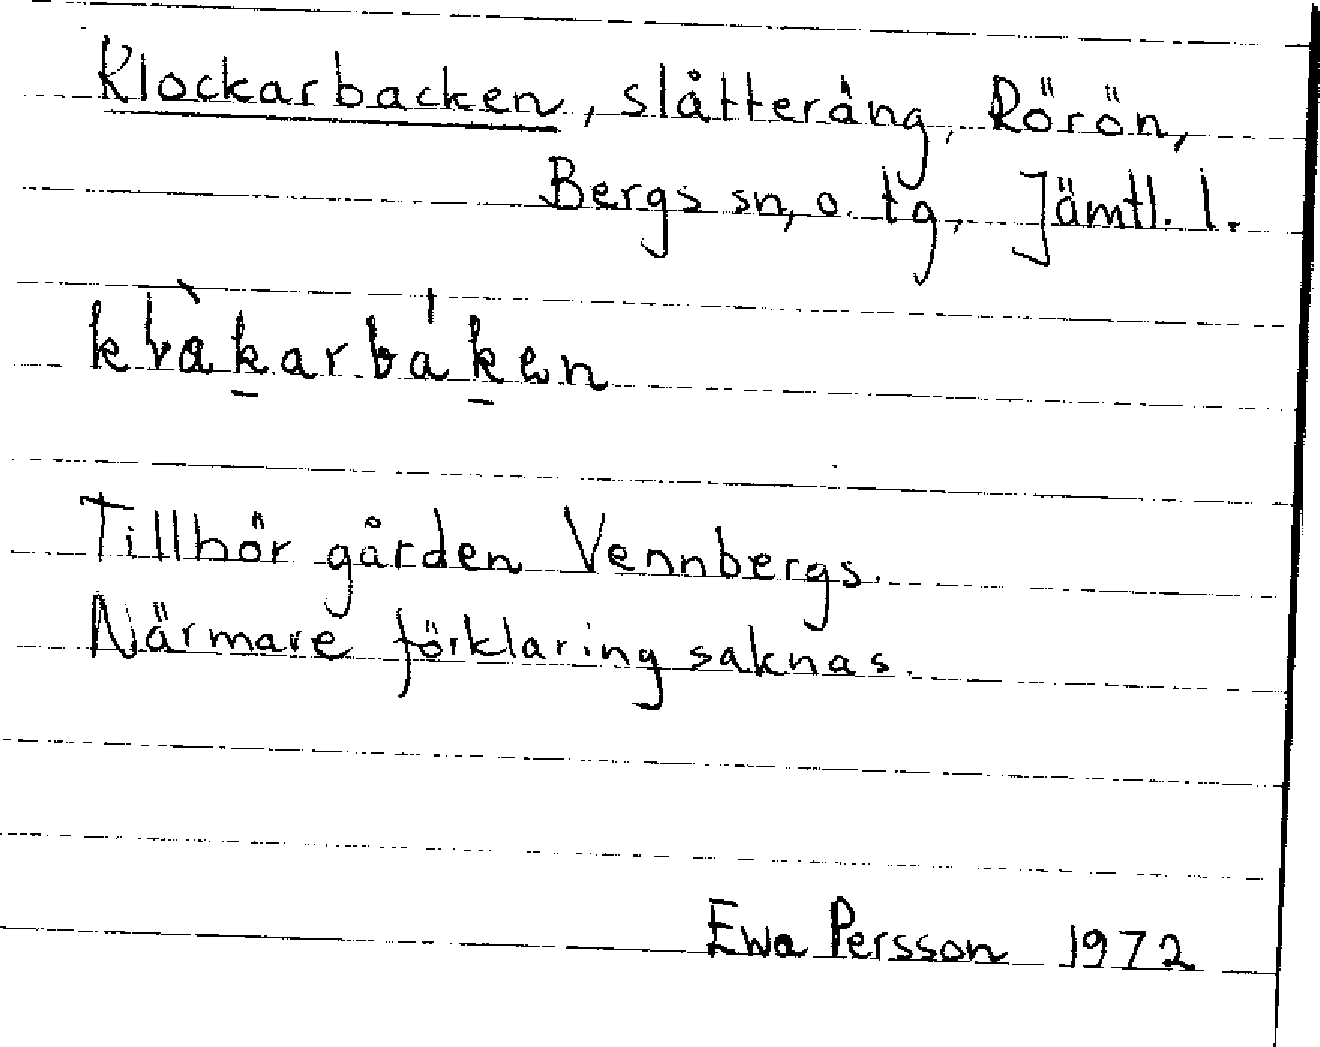 Klockarbacken, slåtteräng, Rörön,
Bergs sn, o. tg, Jämtl. l.
Tillhör gården Vennbergs.
Närmare förklaring saknas.
Ewa Persson 1972